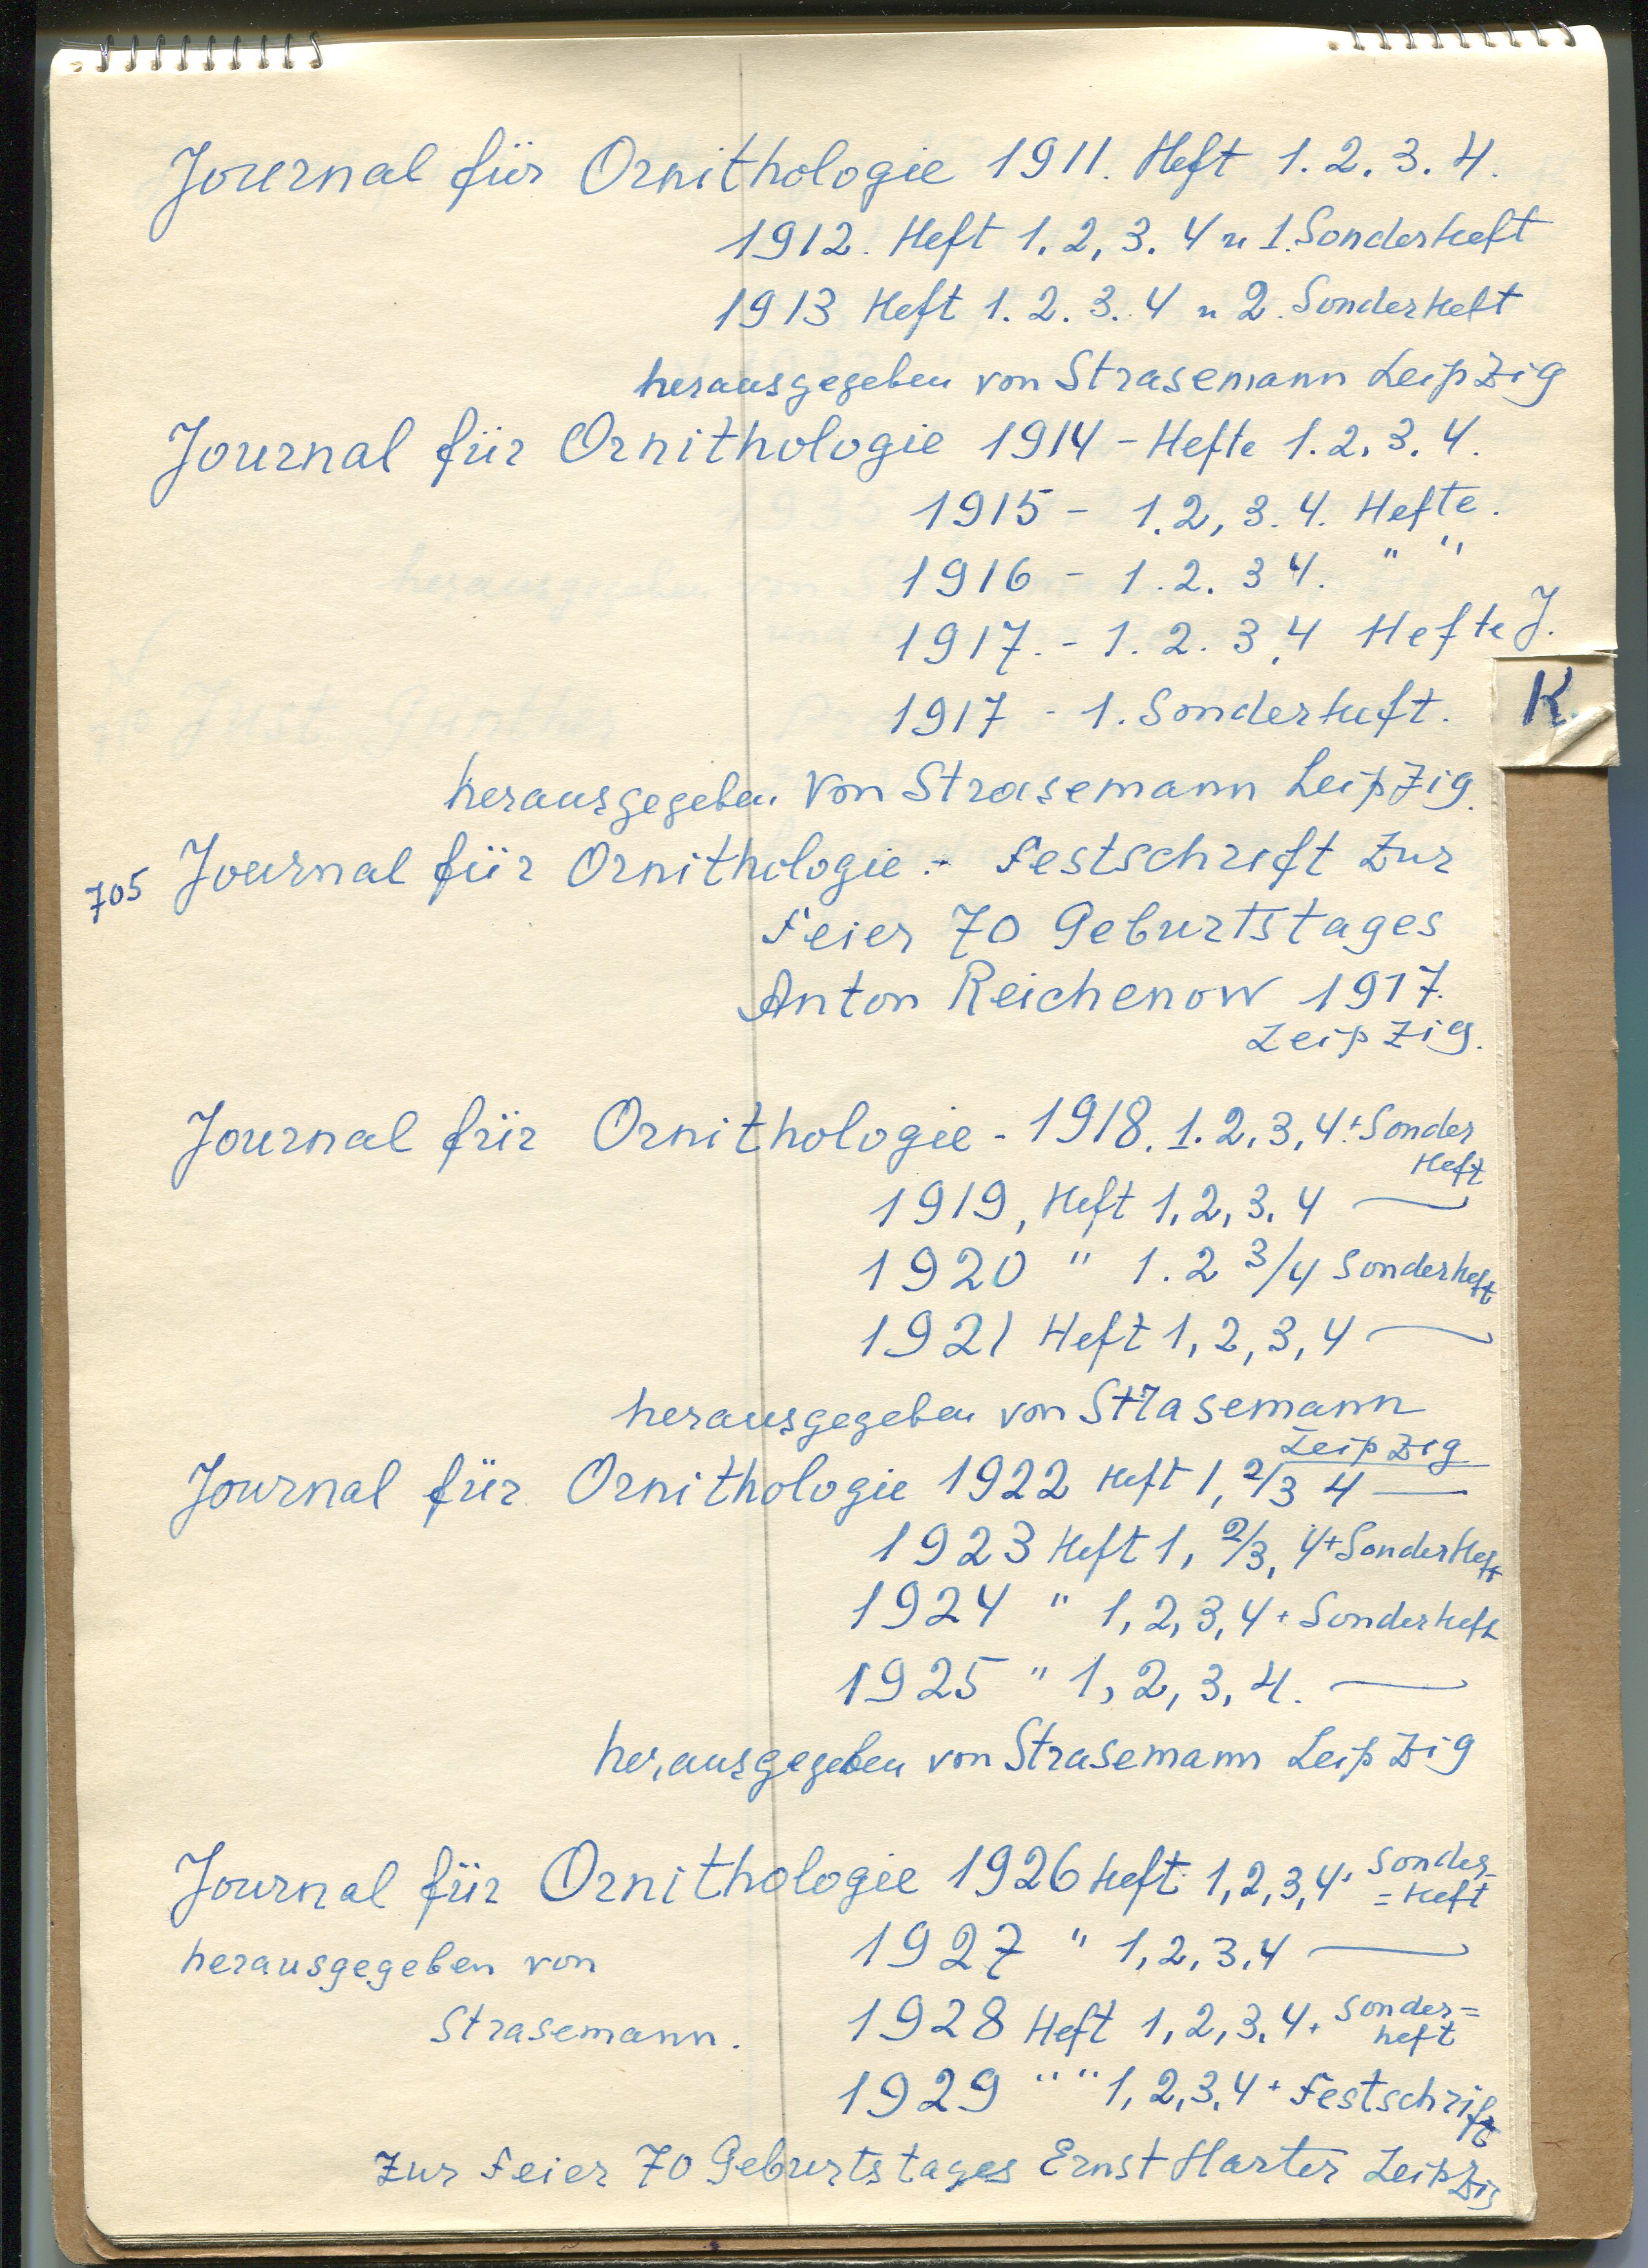 Journal für Ornithologie 1911. Heft 1. 2. 3. 4.
1912. Heft 1. 2, 3. 4 u 1. Sonderheft
1913 Heft 1. 2. 3. 4 u 2. Sonderheft
herausgegeben von Strasemann Leipzig
Journal für Ornithologie 1914 - Hefte 1. 2. 3. 4.
1915 - 1. 2, 3. 4. Hefte.
1916 - 1. 2. 3 4. " "
1917. - 1. 2. 3, 4 Hefte J.
K.
1917 - 1. Sonderheft.
herausgegeben von Strasemann Leipzig.
705 Journal für Ornithologie - Festschrift zur
Feier 70 Geburtstages
Anton Reichenow 1917.
Leipzig.
Journal für Ornithologie - 1918. 1. 2, 3, 4. + Sonder
Heft
1919, Heft 1, 2, 3. 4 —
1920 " 1. 2 3/4 Sonderheft
1921 Heft 1, 2, 3, 4 —
herausgegeben von Strasemann
Leipzig
Journal für Ornithologie 1922 Heft 1, 2/3 4 —
1923 Heft 1, 2/3, 4 + Sonderheft
1924 " 1, 2, 3, 4 + Sonderheft
1925 " 1, 2, 3, 4. —
herausgegeben von Strasemann Leipzig
Journal für Ornithologie 1926 Heft 1, 2, 3, 4 + Sonder-
= Heft
1927 " 1, 2, 3, 4 —
herausgegeben von
1928 Heft 1, 2, 3, 4 + Sonder=
heft
Strasemann.
1929 " " 1, 2, 3, 4 + Festschrift
zur Feier 70 Geburtstages Ernst Harter Leipzig